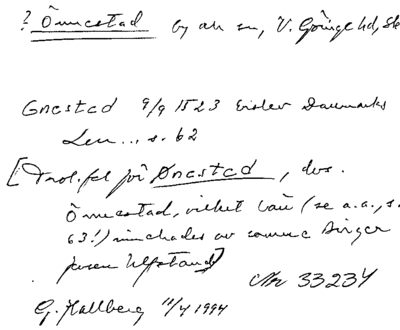 ? Önnestad by ak sn, V. Göinge hd, Sk
Gnestad 9/9 1523 Erslev Danmarks
Len ... s. 62
[Trol. fel för Ønestad, dvs.
Önnestad, vilket län (se a.a., s.
63!) innehades av samme Birger
Jensen Ulfstand]
Nr 33234
G. Hallberg 11/4 1994